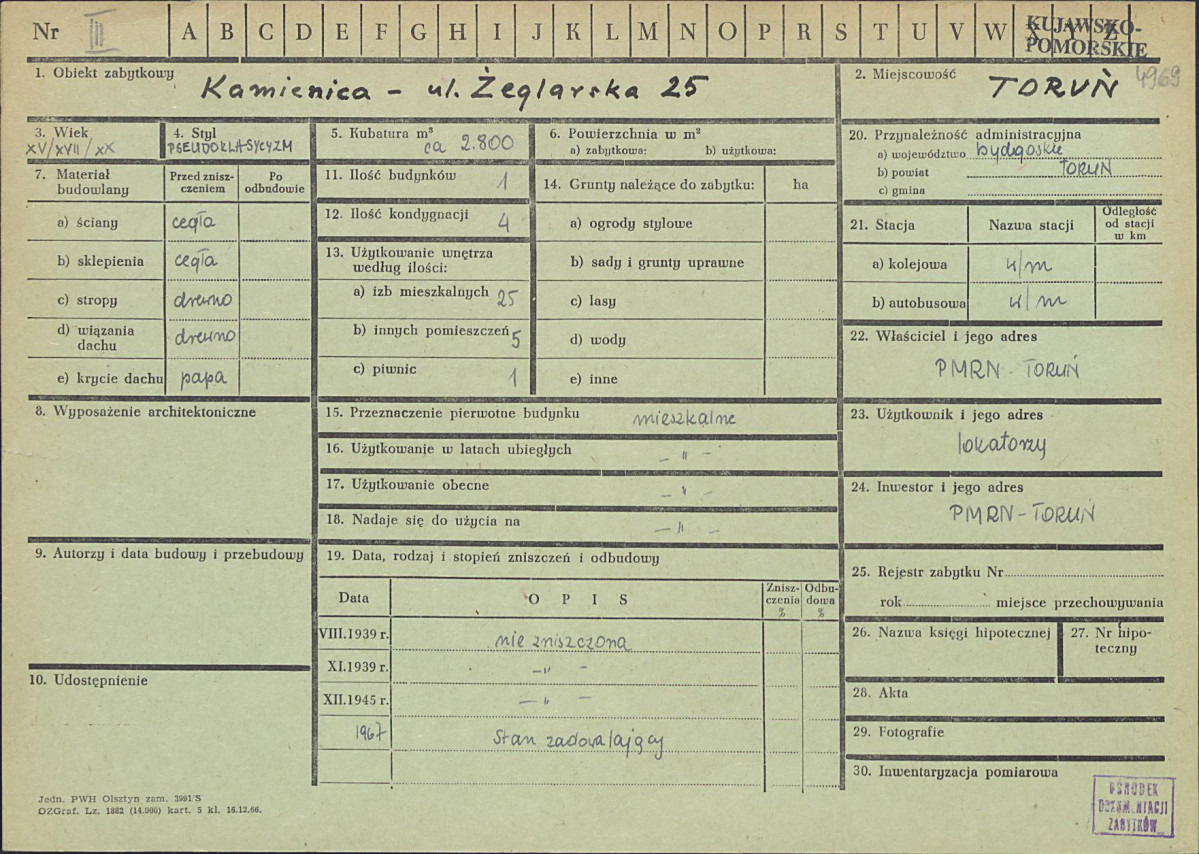 Nr III A B C D E F G H I J K L M N O P R S T U V W X Y Z KUJAWSKO-
POMORSKIE
4969
1. Obiekt zabytkowy
Kamienica - ul. Żeglarska 25
2. Miejscowość
TORUŃ
3. Wiek
XV/XVII/XX
4. Styl
PSEUDOKLASYCYZM
5. Kubatura m³
ca 2.800
6. Powierzchnia w m²
a) zabytkowa: b) użytkowa:
7. Materiał
budowlany
Przed znisz-
czeniem
Po
odbudowie
a) ściany cegła
b) sklepienia cegła
c) stropy drewno
d) wiązania
dachu drewno
e) krycie dachu papa
8. Wyposażenie architektoniczne
9. Autorzy i data budowy i przebudowy
10. Udostępnienie
11. Ilość budynków 1
12. Ilość kondygnacji 4
13. Użytkowanie wnętrza
według ilości:
a) izb mieszkalnych 25
b) innych pomieszczeń 5
c) piwnic 1
14. Grunty należące do zabytku: ha
a) ogrody stylowe
b) sady i grunty uprawne
c) lasy
d) wody
e) inne
15. Przeznaczenie pierwotne budynku mieszkalne
16. Użytkowanie w latach ubiegłych - " -
17. Użytkowanie obecne - " -
18. Nadaje się do użycia na - " -
19. Data, rodzaj i stopień zniszczeń i odbudowy
Data O P I S Znisz-
czenia
% Odbu-
dowa
%
VIII.1939 r. nie zniszczona
XI.1939 r. - " -
XII.1945 r. - " -
1967 Stan zadowalający
20. Przynależność administracyjna
a) województwo bydgoskie
b) powiat TORUŃ
c) gmina
21. Stacja Nazwa stacji Odległość
od stacji
w km
a) kolejowa w/m
b) autobusowa w/m
22. Właściciel i jego adres
PMRN - TORUŃ
23. Użytkownik i jego adres
lokatorzy
24. Inwestor i jego adres
PMRN - TORUŃ
25. Rejestr zabytku Nr
rok miejsce przechowywania
26. Nazwa księgi hipotecznej
27. Nr hipo-
teczny
28. Akta
29. Fotografie
30. Inwentaryzacja pomiarowa
Jedn. PWH Olsztyn zam. 3991/S
OZGraf. Lz. 1882 (14.000) kart. 5 kl. 16.12.66.
OŚRODEK
DOKUMENTACJI
ZABYTKÓW